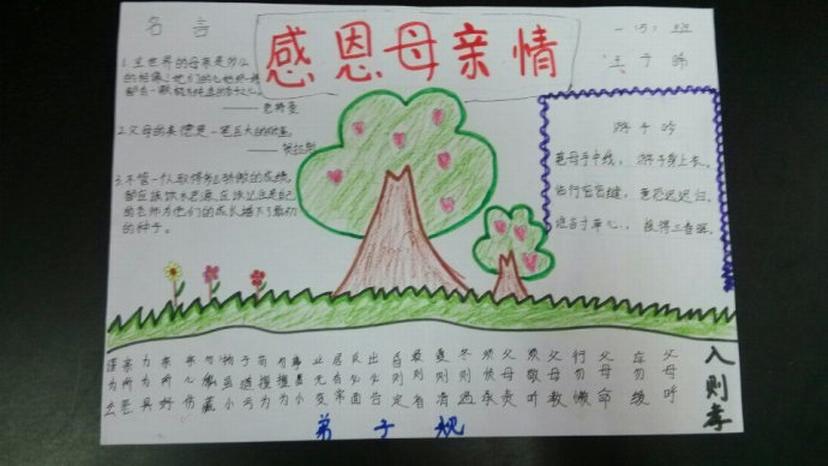 名言
感恩母亲情
一(5)班
1.全世界的母亲是多么
的相像!他们的心始终一样
都有一颗极为纯真的赤子之心。
——惠特曼
2.父母的美德是一笔巨大的财富。
——贺拉斯
3.不管一个人取得多么骄傲的成绩,
都应该饮水思源,应该记住是自己
的老师为他们的成长播下了最初
的种子。
游子吟
慈母手中线, 游子身上衣。
临行密密缝, 意恐迟迟归。
谁言寸草心, 报得三春晖。
入则孝
父母呼
应勿缓
父母命
行勿懒
父母教
须敬听
父母责
须顺承
冬则温
夏则凊
晨则省
昏则定
出必告
反必面
居有常
业无变
事虽小
勿擅为
苟擅为
子道亏
物虽小
勿私藏
亲所好
力为具
亲所恶
谨为去
弟子规